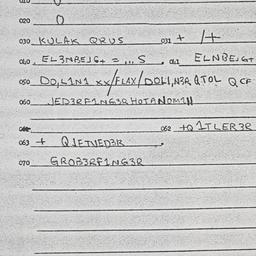 020 0
030 KULAK QRUS 031 + /+
040 EL3NBEJG+ = ,,, S 041 ELNBEJG+
050 DO,L1N1 xx/FLAX/DOLI,N3R QTOL QCF
060 JED3RF1NG3R HOTANOM1N
062 +Q 1TLER3R
063 + QJETVED3R
070 GROB3RF1NG3R